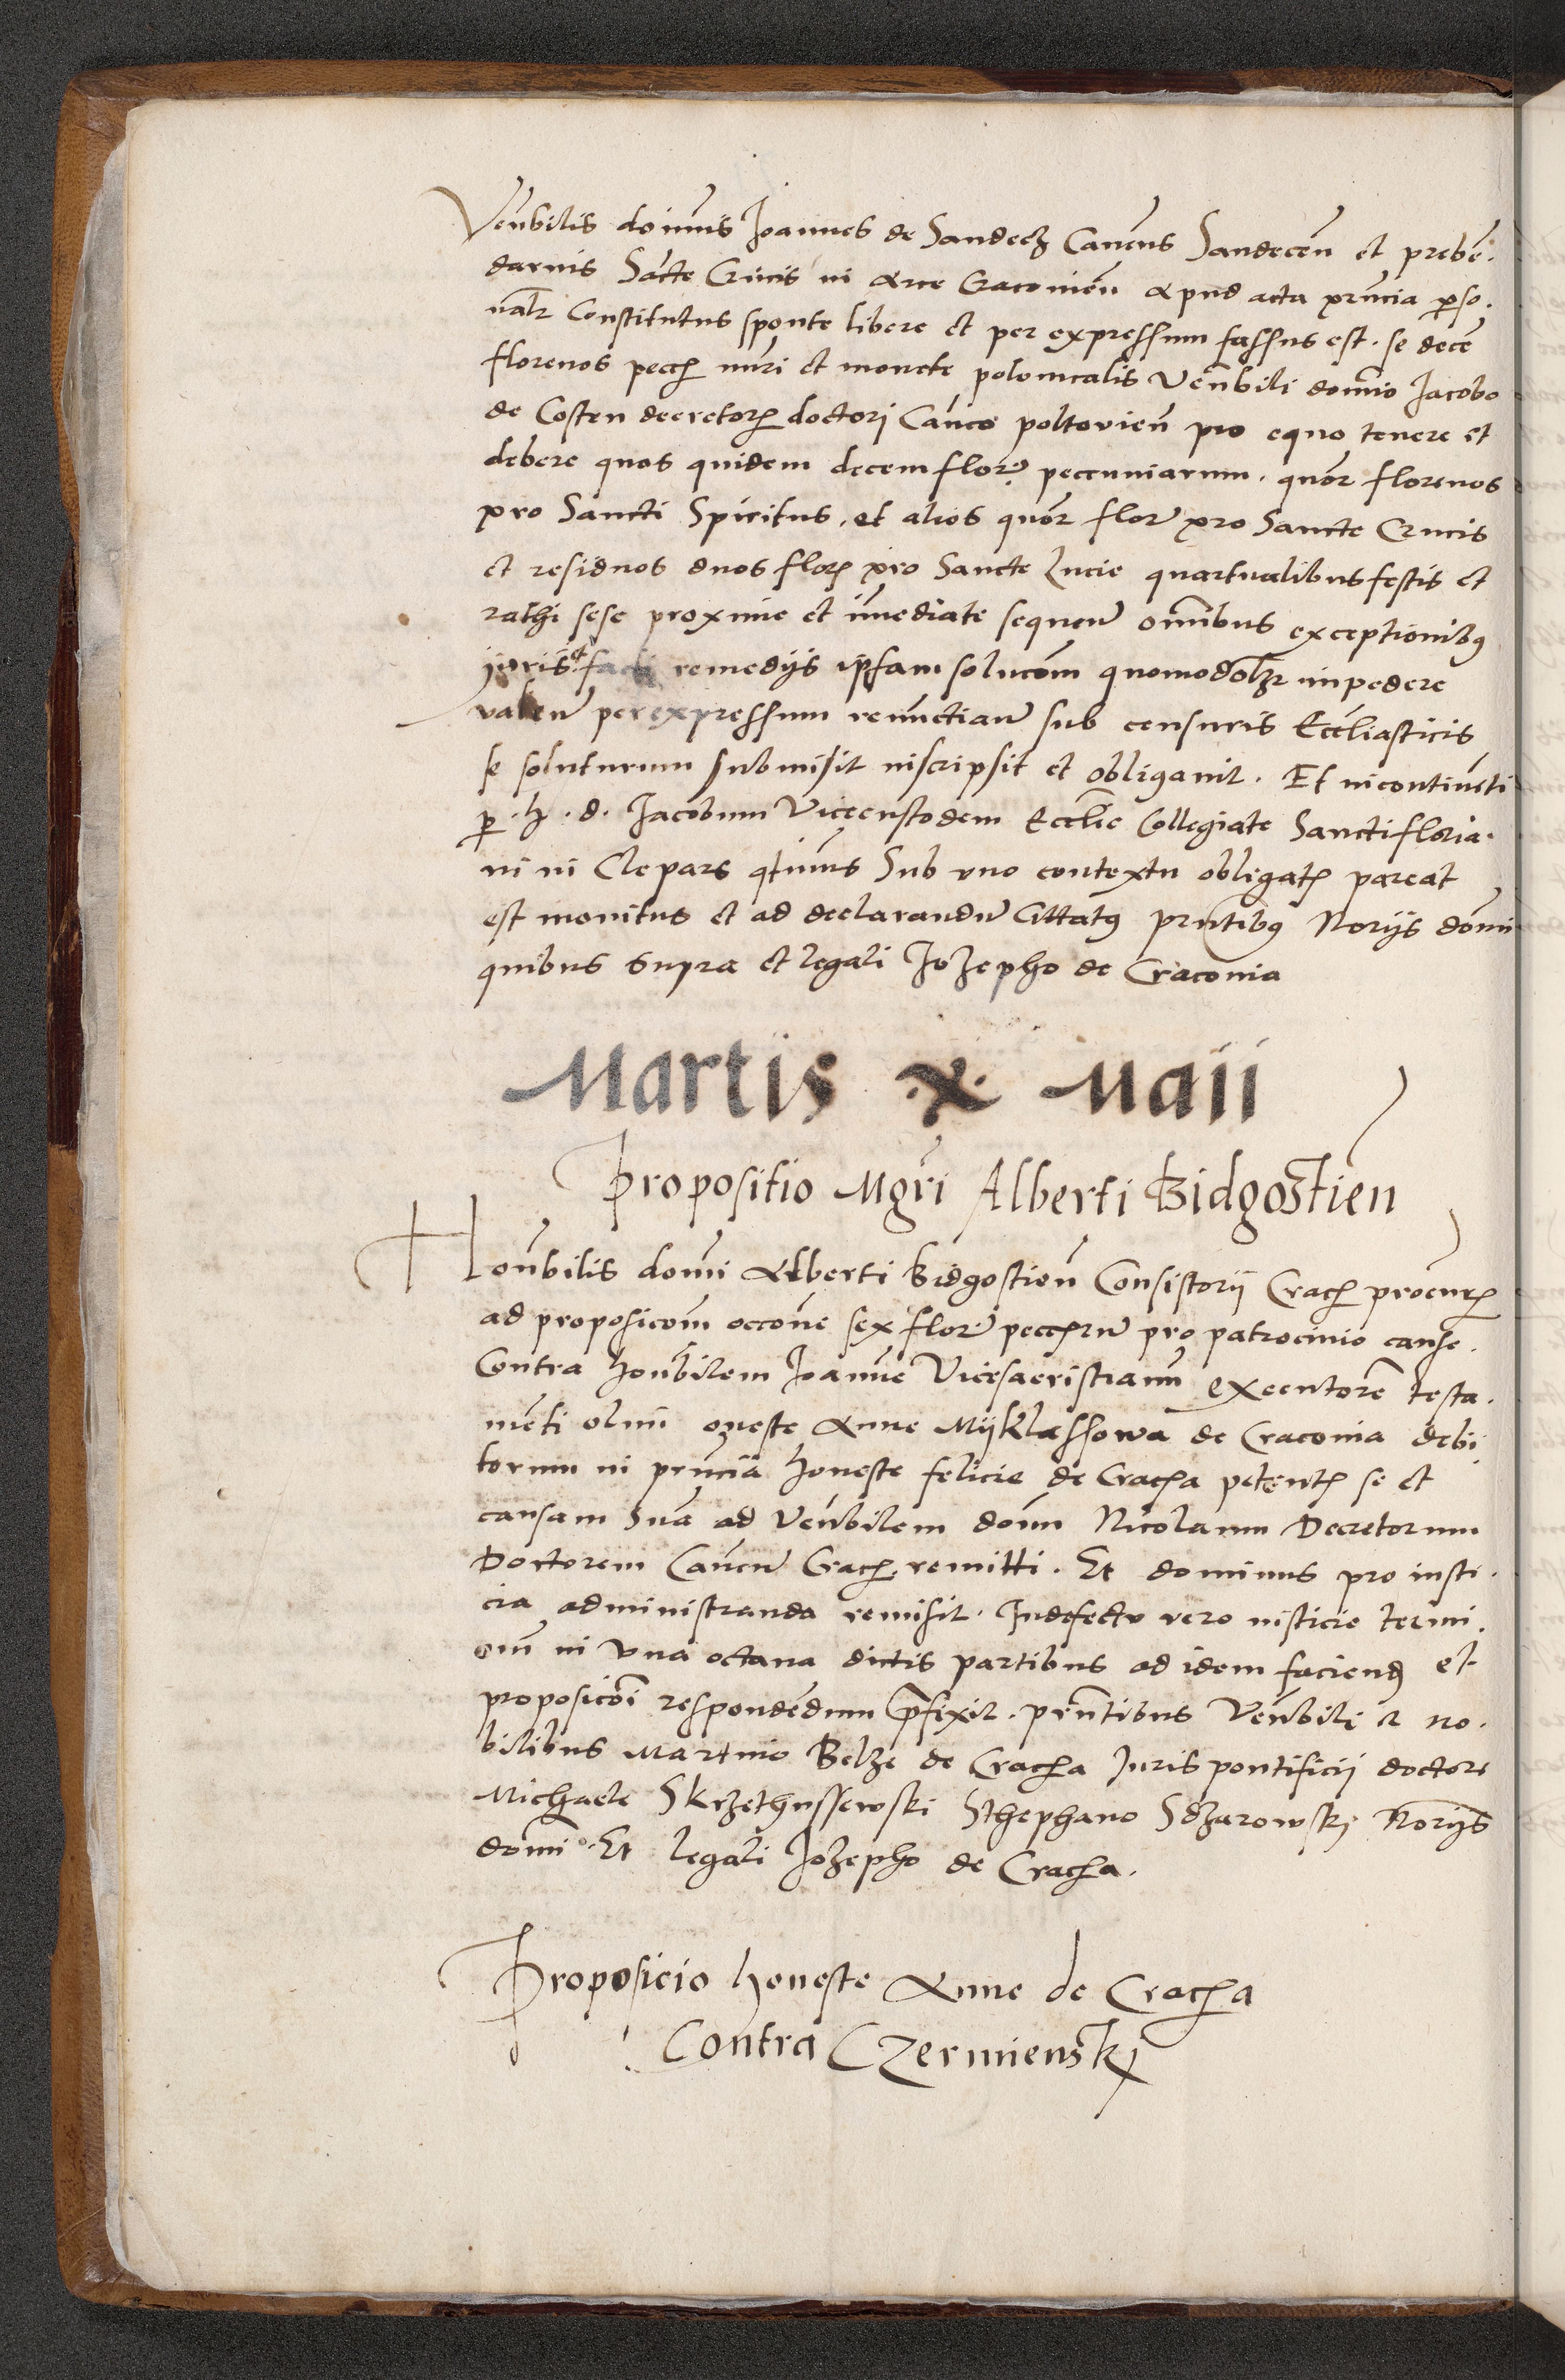 Venͬbilis domͥnus Joannes de Sandecz Canͨcus Sandeceñ et prebē.
darius Sācte Crucis in Arce Cracovieñ apud acta prñcia p̱so.
nalr Constitutus sponte libere et per expressum fassus est. se decē
florenos pecch nūri et monete polonicalis Venͬbili domͥno Jacobo
de Costen decretoꝝ doctori Canͨco poltovieñ pro equo tenere et
debere quos quidem decem floꝝ peccuniarum. quͦor florenos
pro Sancti Spiritus. et alios quͦor floꝝ pro Sancte Crucis
et residuos duos floꝝ pro Sancte Lucie quartualibus festis et
rathi sese proxime et imediate sequeñ omͥbus exceptionibꝯ
juris et facti remedijs ipsam solucōm quomodolȝ impedere
valeñ per expressum renunctiañ sub censuris Eccͣliasticis
se soluturum submisit inscripsit et obligauit. Et incontinēti
p̱. h. d. Jacobum Vicecustodem Ecclīe Collegiate Sancti floria.
ni in Clepars qͥtinus Sub uno contextu obligatꝭ pareat
est monitus et ad declarandū Cittatꝯ prñtibꝯ Norijs domi
quibus supra et legali Jozepho de Craconia
Martis .x. Maii
Propositio Mgri Alberti Bidgostien
Honͬbilis domͥ Alberti Bidgostieñ Consistorij Cracꝭ procurꝭ
ad proposicōm occōne sex floꝝ pecchrū pro patrocinio cause.
Contra honͬbilem Joanne Vicesacristianū executorē testa.
mēti olim oneste Anne Mijklassowa de Craconia debi
torum in prñcia honeste felicie de Cracha petentꝭ se et
causam suā ad Venͬbilem dom̄ Nicolaum Decretorum
Doctorem Canͨcū Cracꝭ remitti. Et dominus pro iusti.
cia administranda remisit. In defectu vero iusticie termi.
om̄ in una octaua dictis partibus ad idem faciendꝭ et
proposicōi respondēdum p̄fixit. prēntibus Venͬbili et no.
bilibus Martino Belze de Cracha Juris pontificij doctore
Michaele Skrzethussewski Sthephano Sdzarowskj Norijs
domͥ. Et legali Jozepho de Cracha.
Proposicio honeste Anne de Cracha
Contra Czermienskj